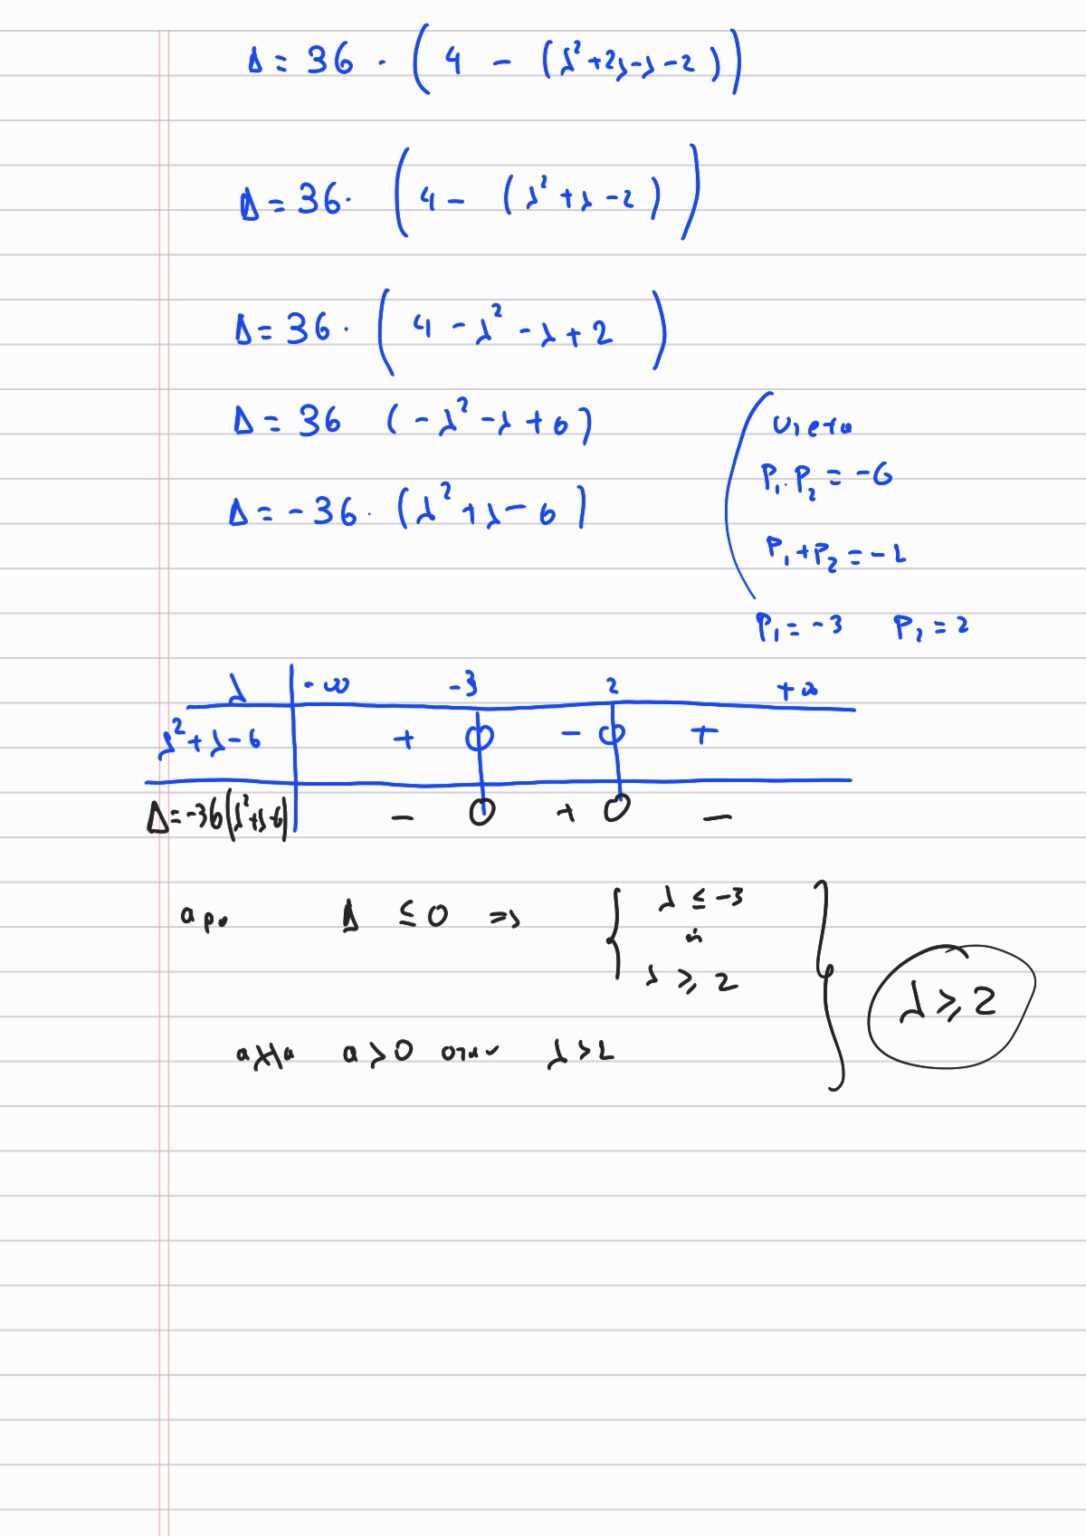 Δ = 36 · (4 - (λ²+2λ-λ-2))
Δ = 36· (4 - (λ²+λ-2))
Δ = 36 · (4 - λ² - λ + 2)
Δ = 36 (-λ² - λ + 6)
Δ = -36 · (λ² + λ - 6)
Vieta
P₁·P₂ = -6
P₁+P₂ = -1
P₁ = -3 P₂ = 2
λ -∞ -3 2 +∞
λ²+λ-6 + 0 - 0 +
Δ=-36(λ²+λ-6) - 0 + 0 -
αρα Δ ≤ 0 => λ ≤ -3
ή
λ ≥ 2
λ ≥ 2
αλλα α>0 οταν λ>1